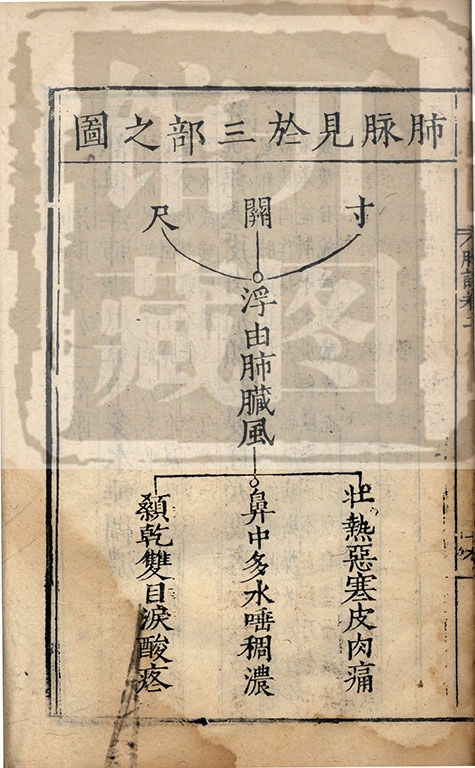 肺脉見於三部之圖
寸
關
尺
浮由肺臟風
壮熱惡寒皮肉痛
鼻中多水唾稠濃
顙乾雙目淚酸疼